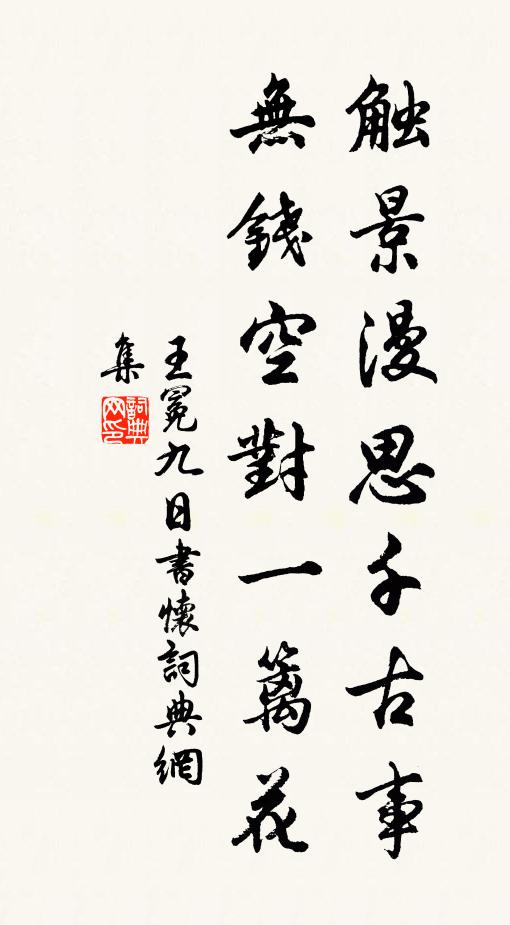 触景漫思千古事
無錢空對一籬花
王冕九日書懷詞典網
集
詞典
网印